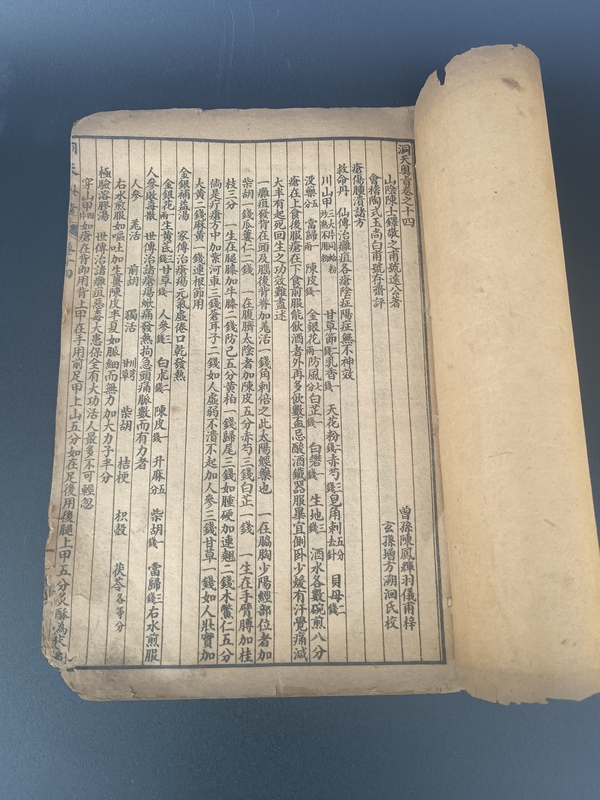 洞天奧旨卷之十四
山陰陳士鐸敬之甫號遠公著
會稽陶式玉尚白甫號存齋評
曾孫陳鳳輝羽儀甫梓
玄孫增方溯洄氏校
瘡傷腫潰諸方
救命丹 仙傳治癰疽各瘡陰症陽症無不神效
川山甲三大片同蛤粉炒熟不用粉 甘草節二錢 乳香一錢 天花粉二錢 赤芍三錢 皂角刺五分去針 貝母二錢
沒藥五分 當歸一兩 陳皮一錢 金銀花一兩 防風七分 白芷一錢 白礬一錢 生地三錢 酒水各數碗煎八分
瘡在上食後服瘡在下食前服能飲酒者外再多飲數盃忌酸酒鐵器服畢宜側卧少煖有汗覺痛減
大半有起死回生之功效難盡述
一癰疽發背在頭及腦後背脊加羌活一錢角刺倍之此太陽經藥也 一在脇胸少陽經部位者加
柴胡一錢瓜蔞二錢 一在腹臍太陰者加陳皮五分赤芍三錢白芷一錢 一生在手臂膊加桂
枝三分 一生在腿膝加牛膝二錢防己五分黃柏一錢歸尾三錢如腫硬加連翹二錢木鱉仁五分
倘是疔瘡方中加紫河車三錢蒼耳子三錢如人虛弱不潰不起加人參三錢甘草一錢如人壯實加
大黃一錢麻黃一錢連根節用
金銀補益湯 家傳治瘡瘍元氣虛倦口乾發熱
金銀花二兩 生黃芪三錢 甘草一錢 人參三錢 白朮二錢 陳皮一錢 升麻五分 柴胡一錢 當歸三錢 右水煎服
人參敗毒散 世傳治諸瘡瘍焮痛發熱拘急頭痛脈數而有力者
人參 羌活 前胡 獨活 川芎 甘草 柴胡 桔梗 枳殼 茯苓各等分
右水煎服如嘔吐加生薑陳皮半夏如脈細而無力加大力子半分
極驗溶膠湯 世傳治諸癰疽惡毒大患保全有大功活人最多不可輕忽
穿山甲四片如瘡在背即用背上甲在手用前足甲上山五分如在足後用後腿上甲五分炙酥為末